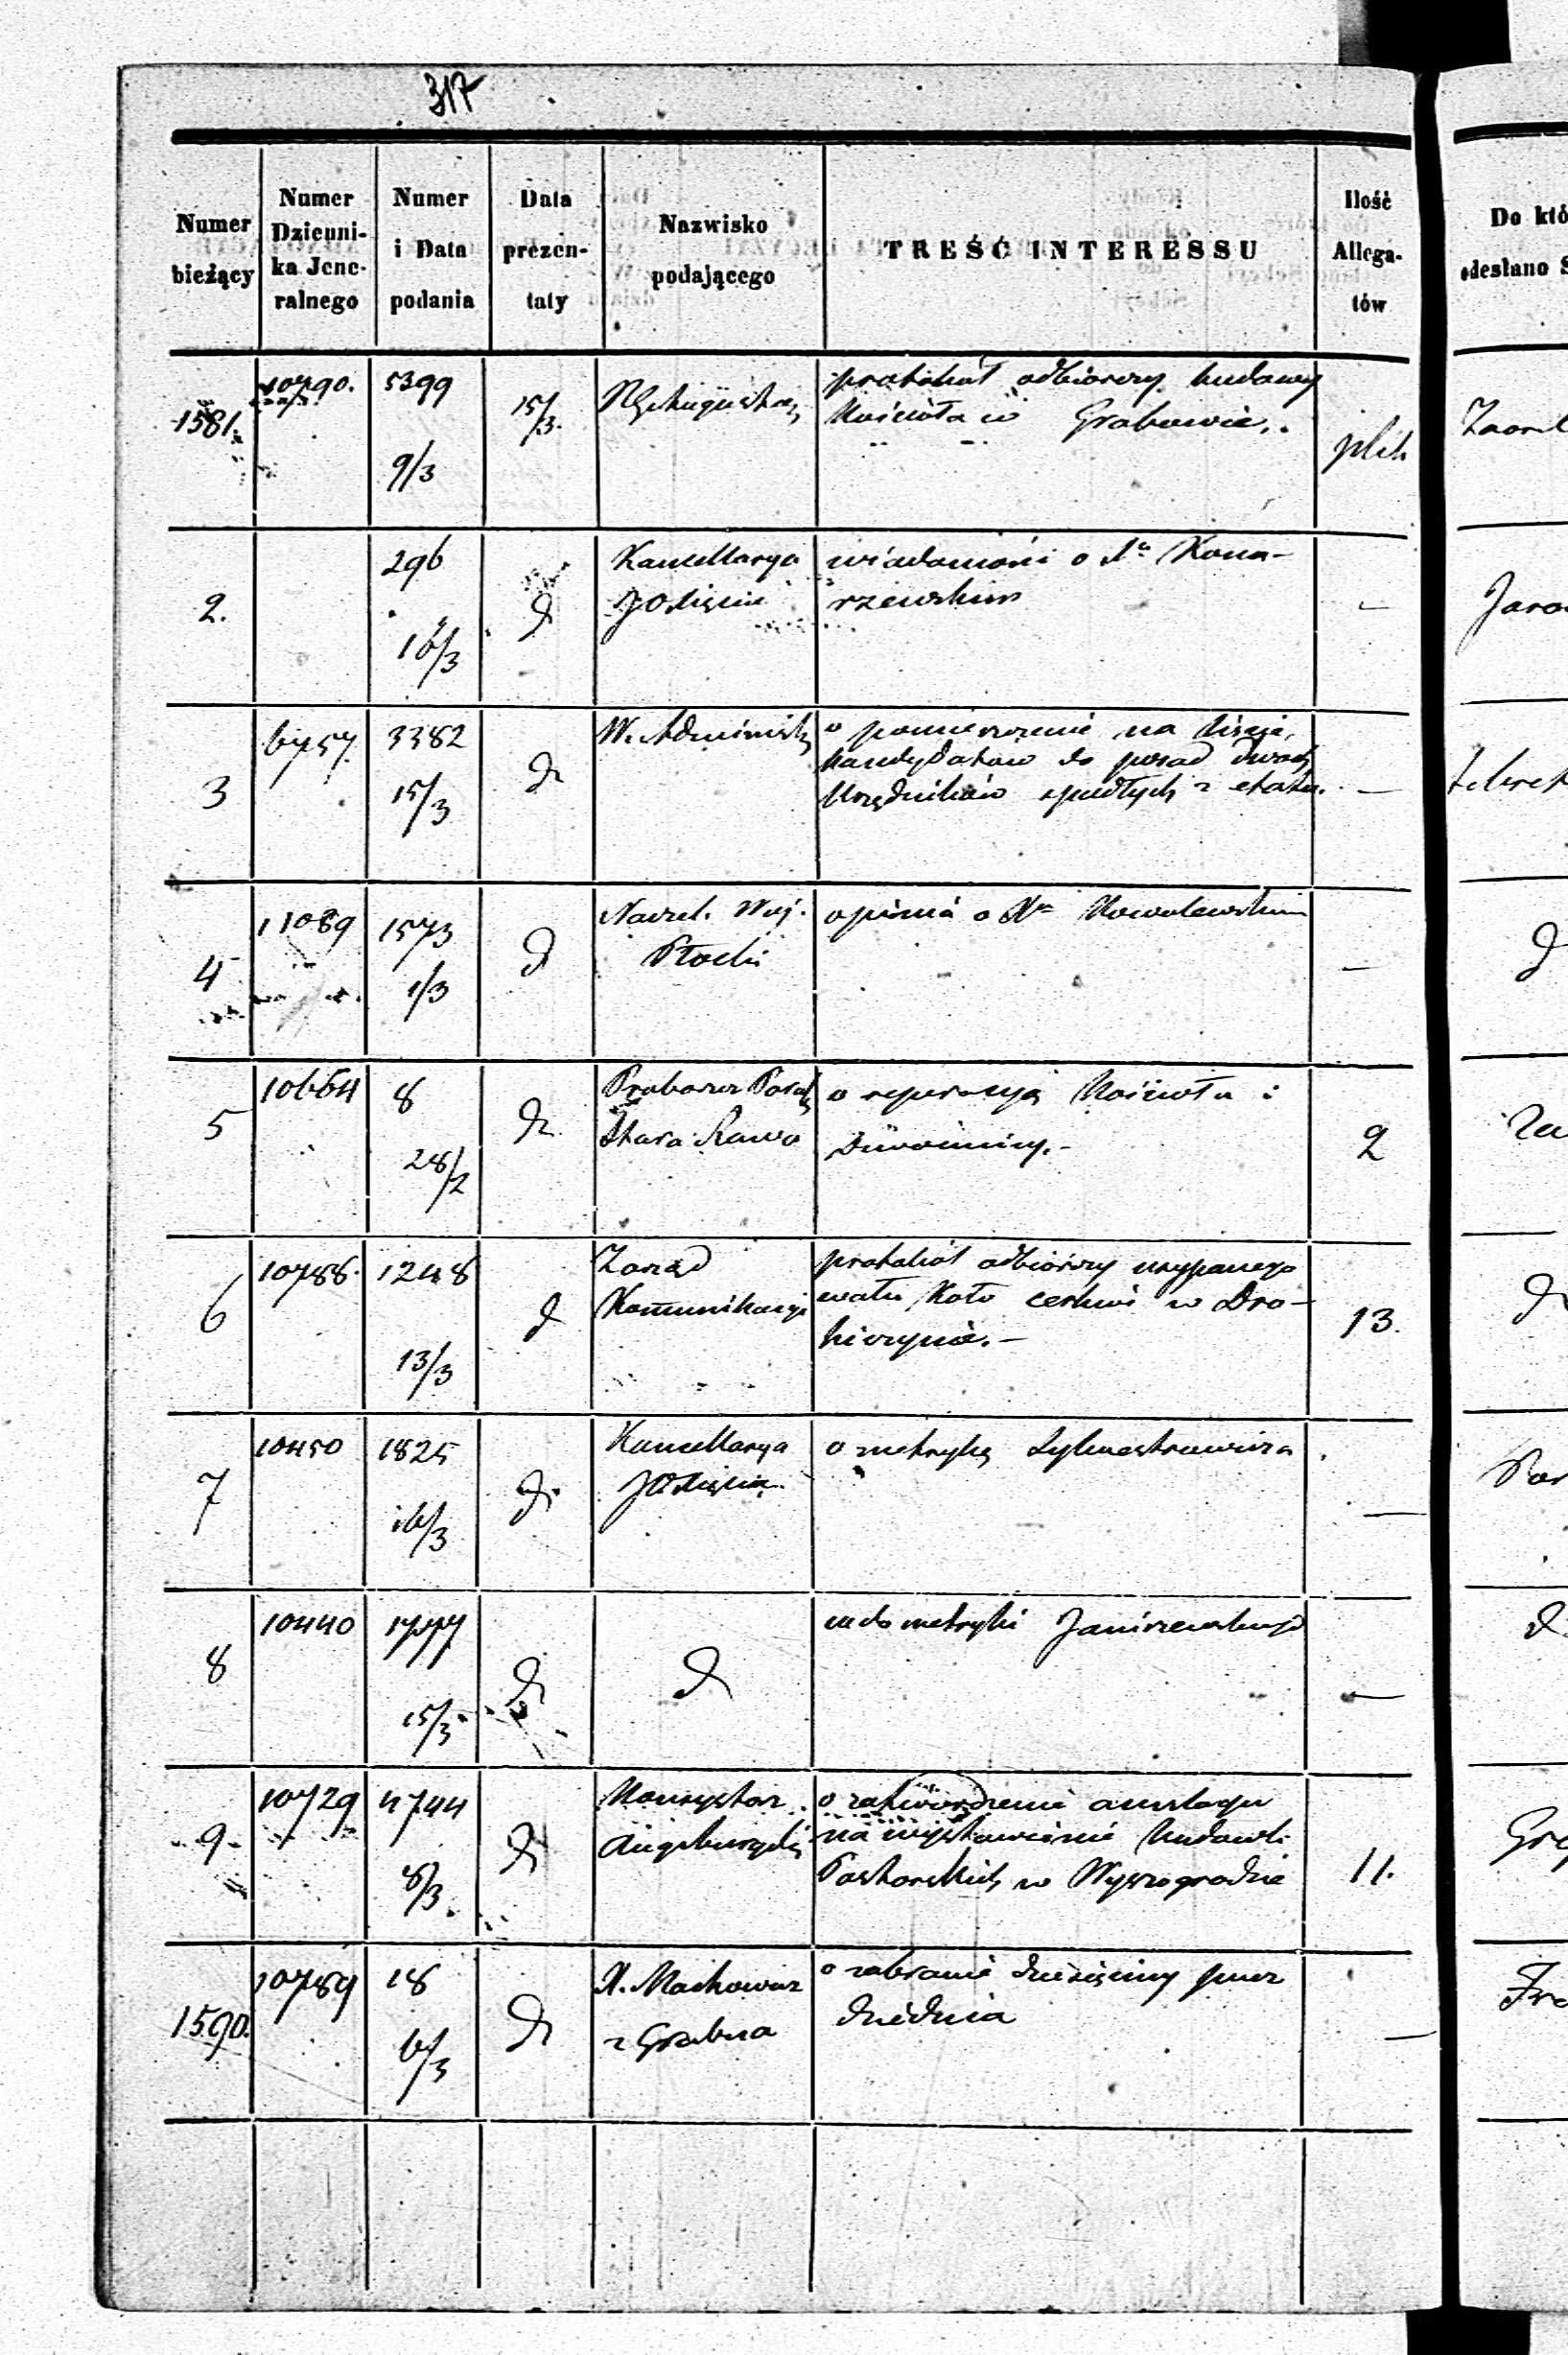 317
Numer bieżący
Numer Dzienni-ka Jene-ralnego
Numer i Data podania
Data prezen-taty
Nazwisko podającego
TREŚĆ INTERESSU
Ilość Allega-tów
Do któ
odesłano S
1581.
10790.
5399
9/3
15/3.
protokół odbiorczy budowy
Kościoła w Grabowie.
plik
2.
296
16/3
d
Kancellarya
wiadomość o Kona-
rzewskim
—
3
6757
3382
15/3
d
W. Administr
o pomieszczenie na liście,
kandydatów do posad dwóch
Urzędników spadłych z etatu.
—
4
11089
1573
1/3
d
Naczel. Woj.
Płocki
opinia o Kowalewskim
—
d
5
10664
8
28/2
d
Proboszcz
Stara Rawa
o reperacyą Kościoła i
Dzwonnicy.-
2
6
10788.
1248
13/3
d
Zarząd
Komunikacyi
protokół odbiorczy usypanego
wału koło cerkwi w Dro-
hiczynie.-
13.
d
7
10450
1825
16/3
d
Kancellarya
o metrykę Sylwestrowicza
—
8
10440
1777
15/3
d
d
metryki Janiszewskiego
—
d
9
10729
4744
8/3
d
Konsystorz
Augsburgski
o zatwierdzenie anszlagu
na wystawienie budowli
Pastorskich w Wyszogrodzie
11.
1590.
10789
18
6/3
d
X. Machowicz
z Grabna
o zabranie dziesięciny przez
dziedzica
—